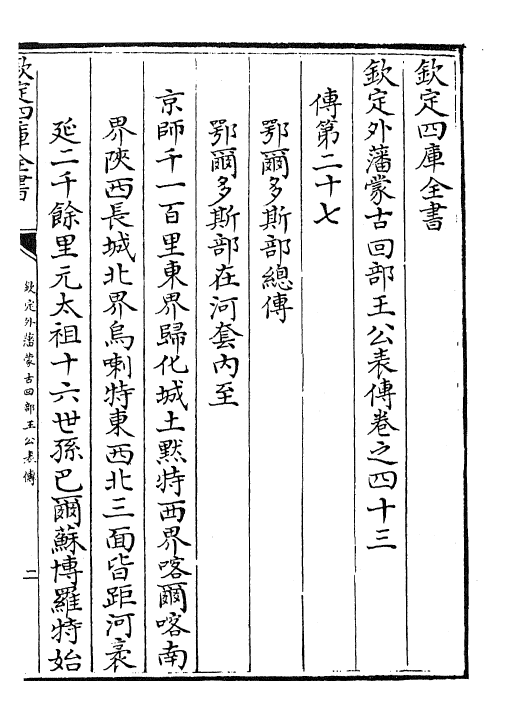 欽定四庫全書
欽定外藩蒙古回部王公表傳卷之四十三
傳第二十七
鄂爾多斯部總傳
鄂爾多斯部在河套內至
京師千一百里東界歸化城土默特西界喀爾喀南
界陜西長城北界烏喇特東西北三面皆距河袤
延二千餘里元太祖十六世孫巴爾蘇博羅特始
欽定四庫全書
欽定外藩蒙古回部王公表傳
二